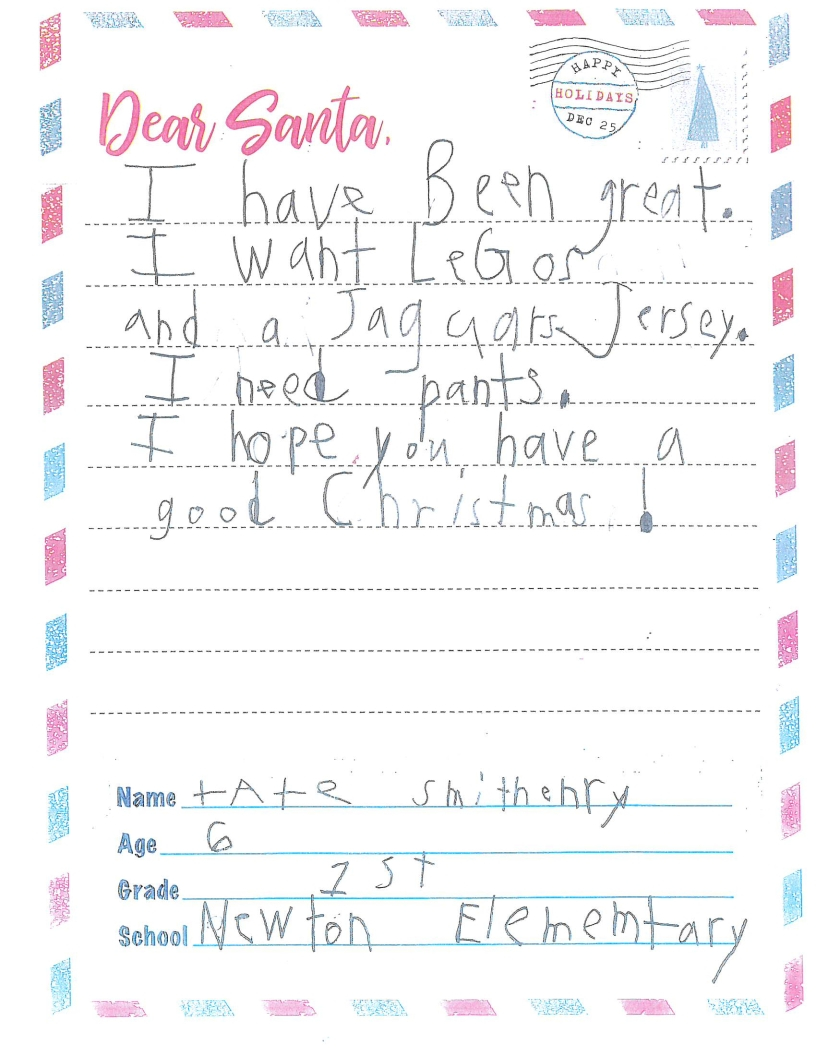 HAPPY
HOLIDAYS
DEC 25
Dear Santa,
I have Been great.
I want LeGos
and a Jaguars Jersey.
I need pants.
I hope you have a
good Christmas!
Name tAte Smithenry
Age 6
Grade 1st
School Newton Elememtary